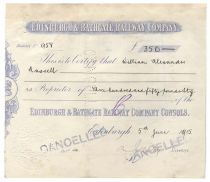 EDINBURGH & BATHGATE RAILWAY COMPANY
958 £350
This is to Certify that William Alexander
is Proprietor of Three hundred fifty pounds
of the
EDINBURGH & BATHGATE RAILWAY COMPANY CONSOLS.
Edinburgh 5th June 1915
CANCELLED
CANCELLED